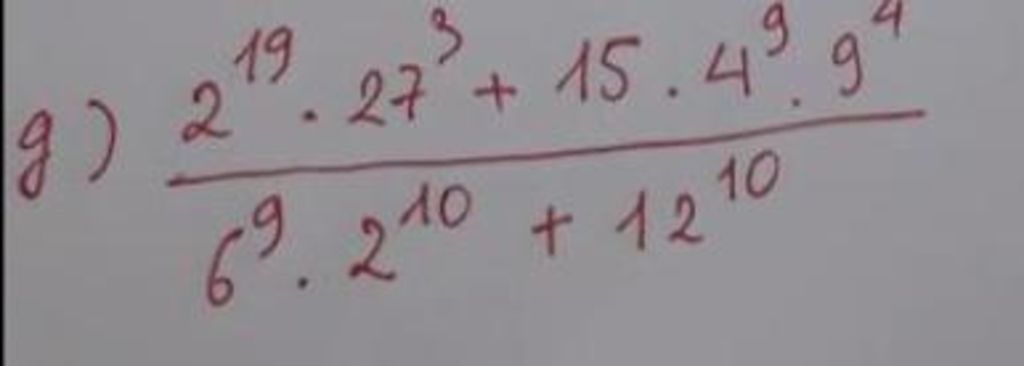 g) 2^19 . 27^3 + 15 . 4^9 . 9^4
6^9 . 2^10 + 12^10